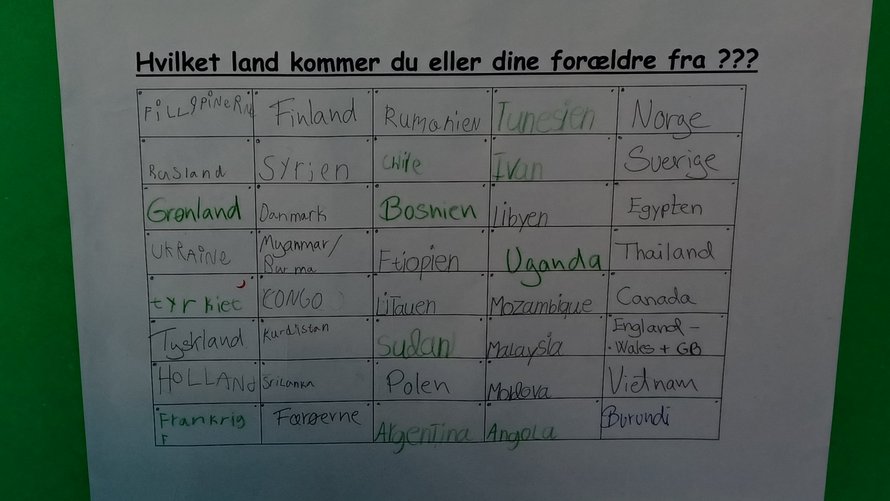 Hvilket land kommer du eller dine forældre fra ???
FILLIPINERNE Finland Rumænien Tunesien Norge
Rusland Syrien Chile Ivan Sverige
Grønland Danmark Bosnien Libyen Egypten
UKRAINE Myanmar/ Etiopien Uganda Thailand
Burma
tyrkiet CONGO LiTauen Mozambique Canada
Tyskland Kurdistan Sudan Malaysia England -
Wales + GB
HOLLAND SriLanka Polen Moldova Vietnam
Frankrig Færøerne Argentina Angola Burundi
F